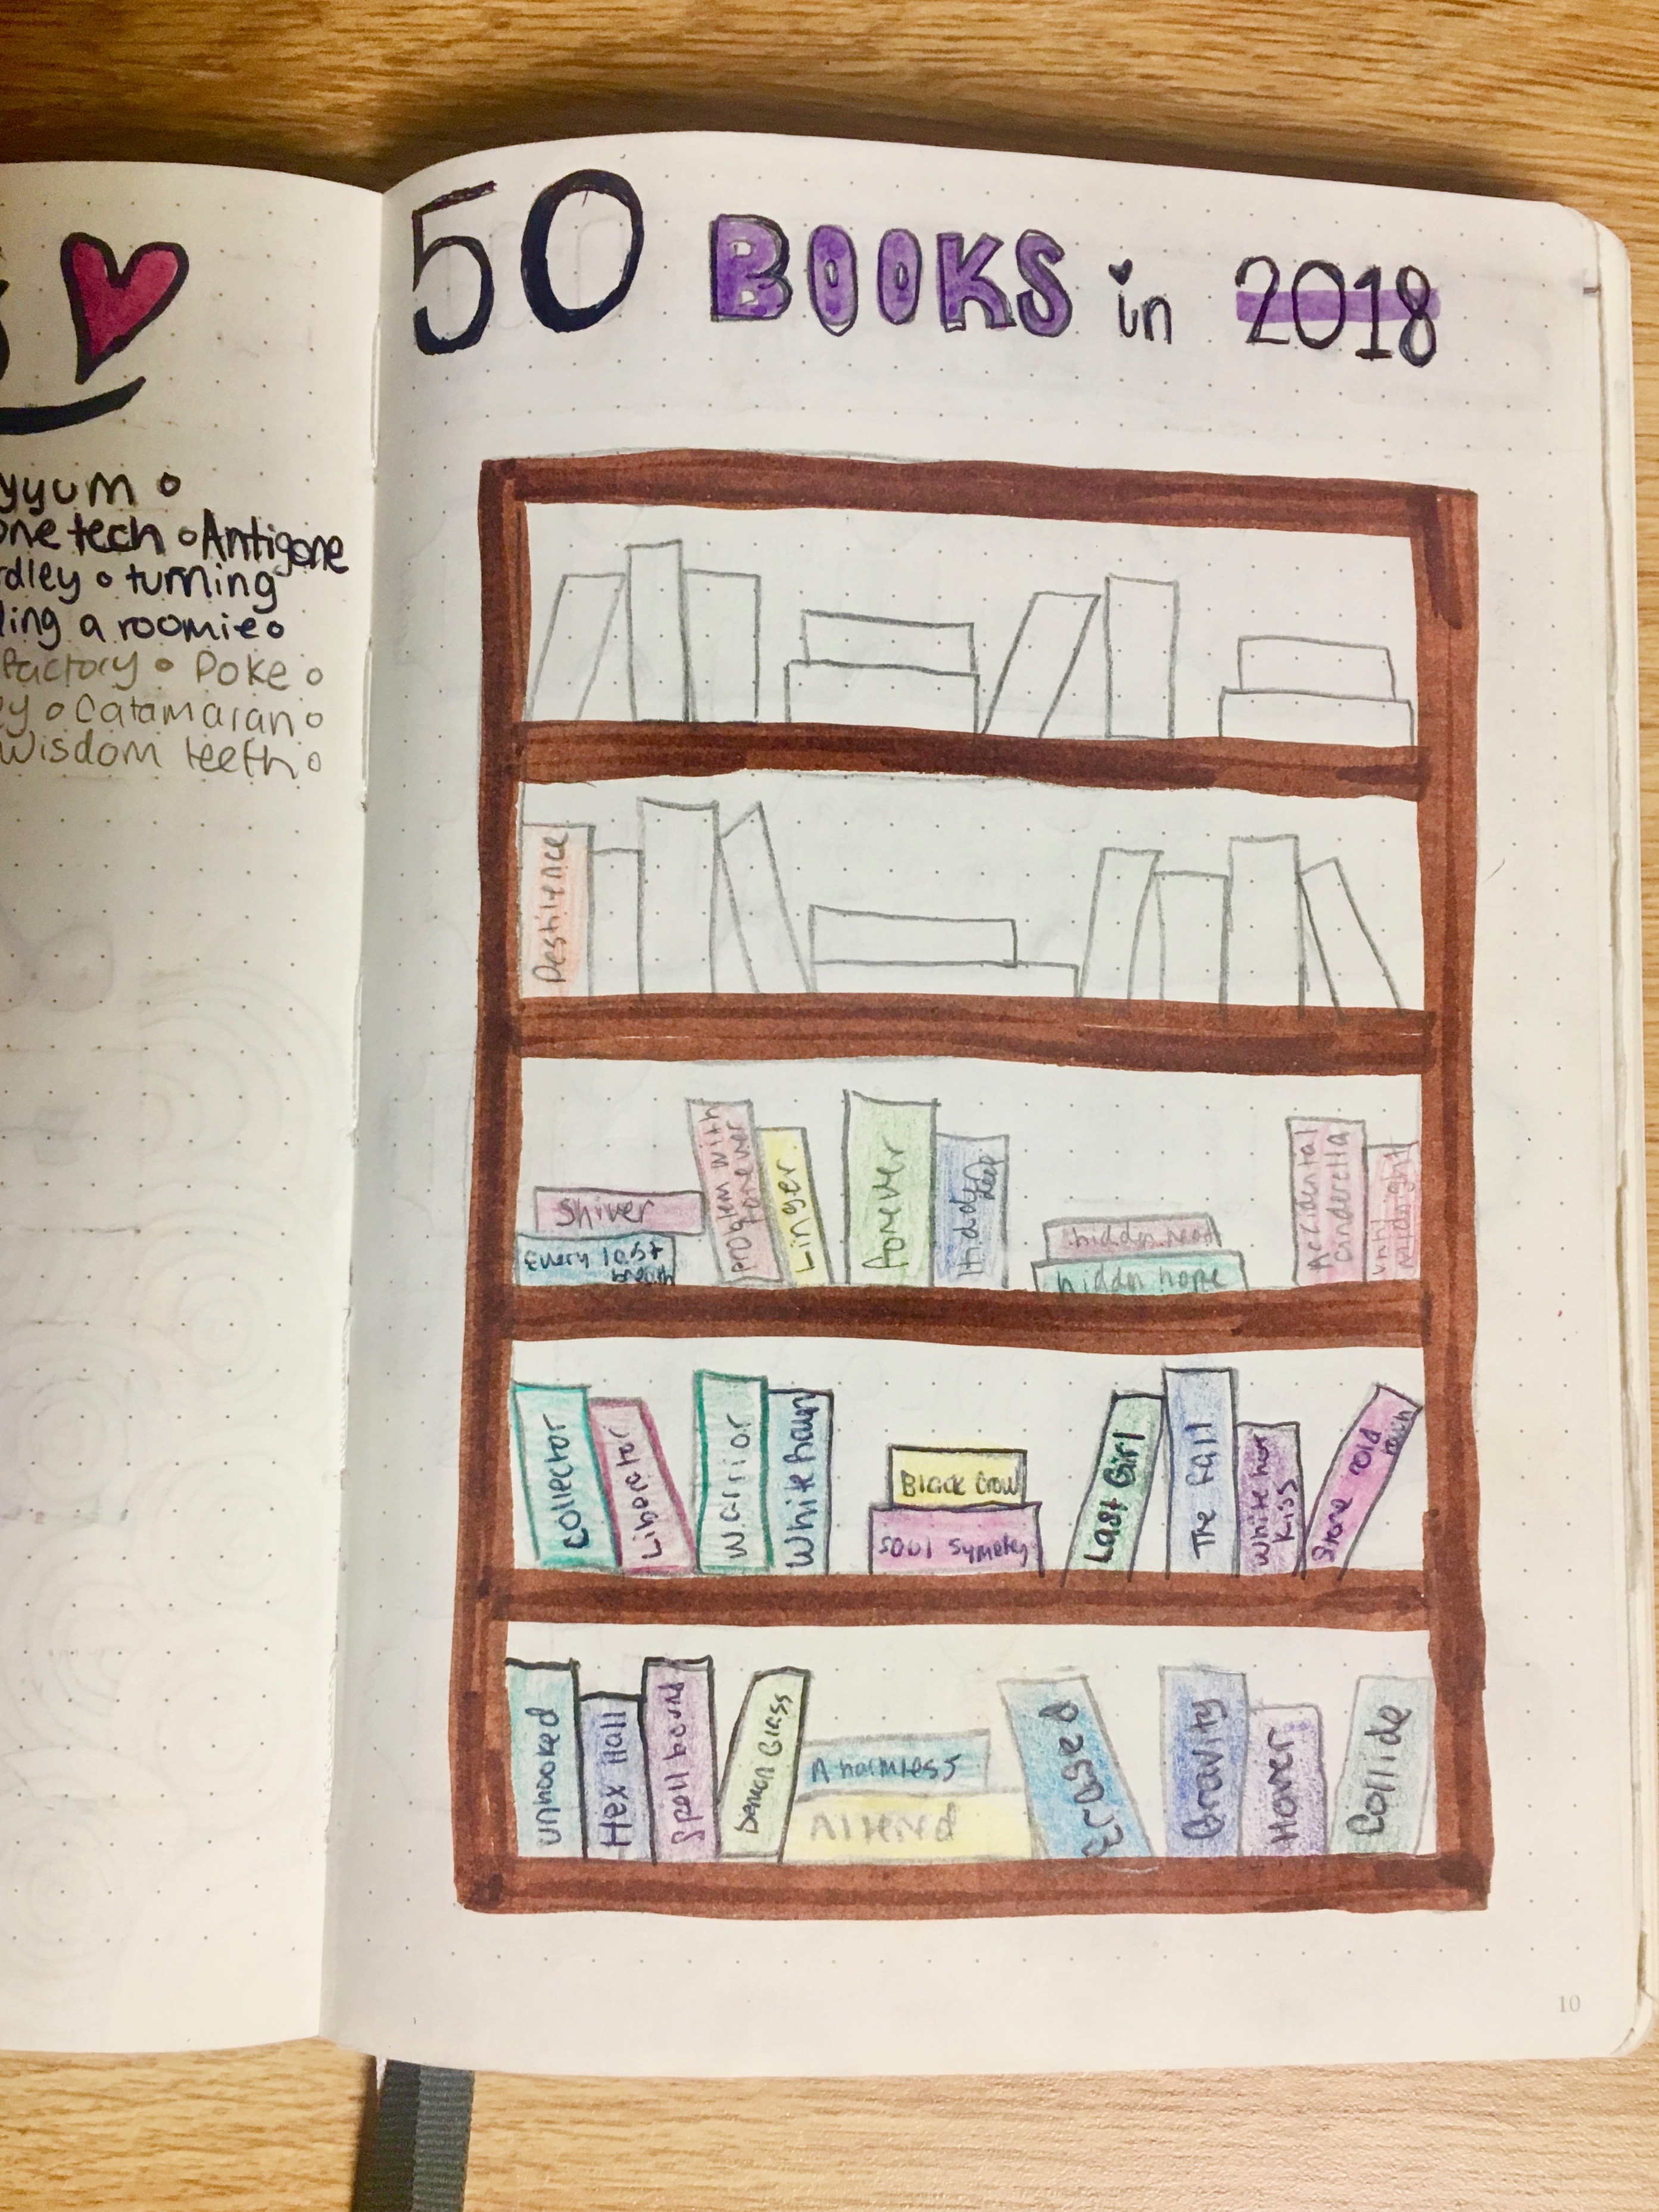 yyum o
one tech o Antigone
dley o turning
ling a roomie o
factory o Poke o
ey o Catamaran o
Wisdom teeth o
50 BOOKS in 2018
Pestilence
Shiver
Every last
breath
problem with
forever
Linger
forever
Hidden
deep
hidden heart
hidden hope
Accidental
Cinderella
until
midnight
Collector
Liberator
Warrior
White hawn
Black Crow
Soul Symetry
Last Girl
The fall
White hot
Kiss
Stone cold
touch
unhooked
Hex Hall
Spell bound
Demon Glass
A harmless
Altered
Erased
Gravity
Hover
Collide
10